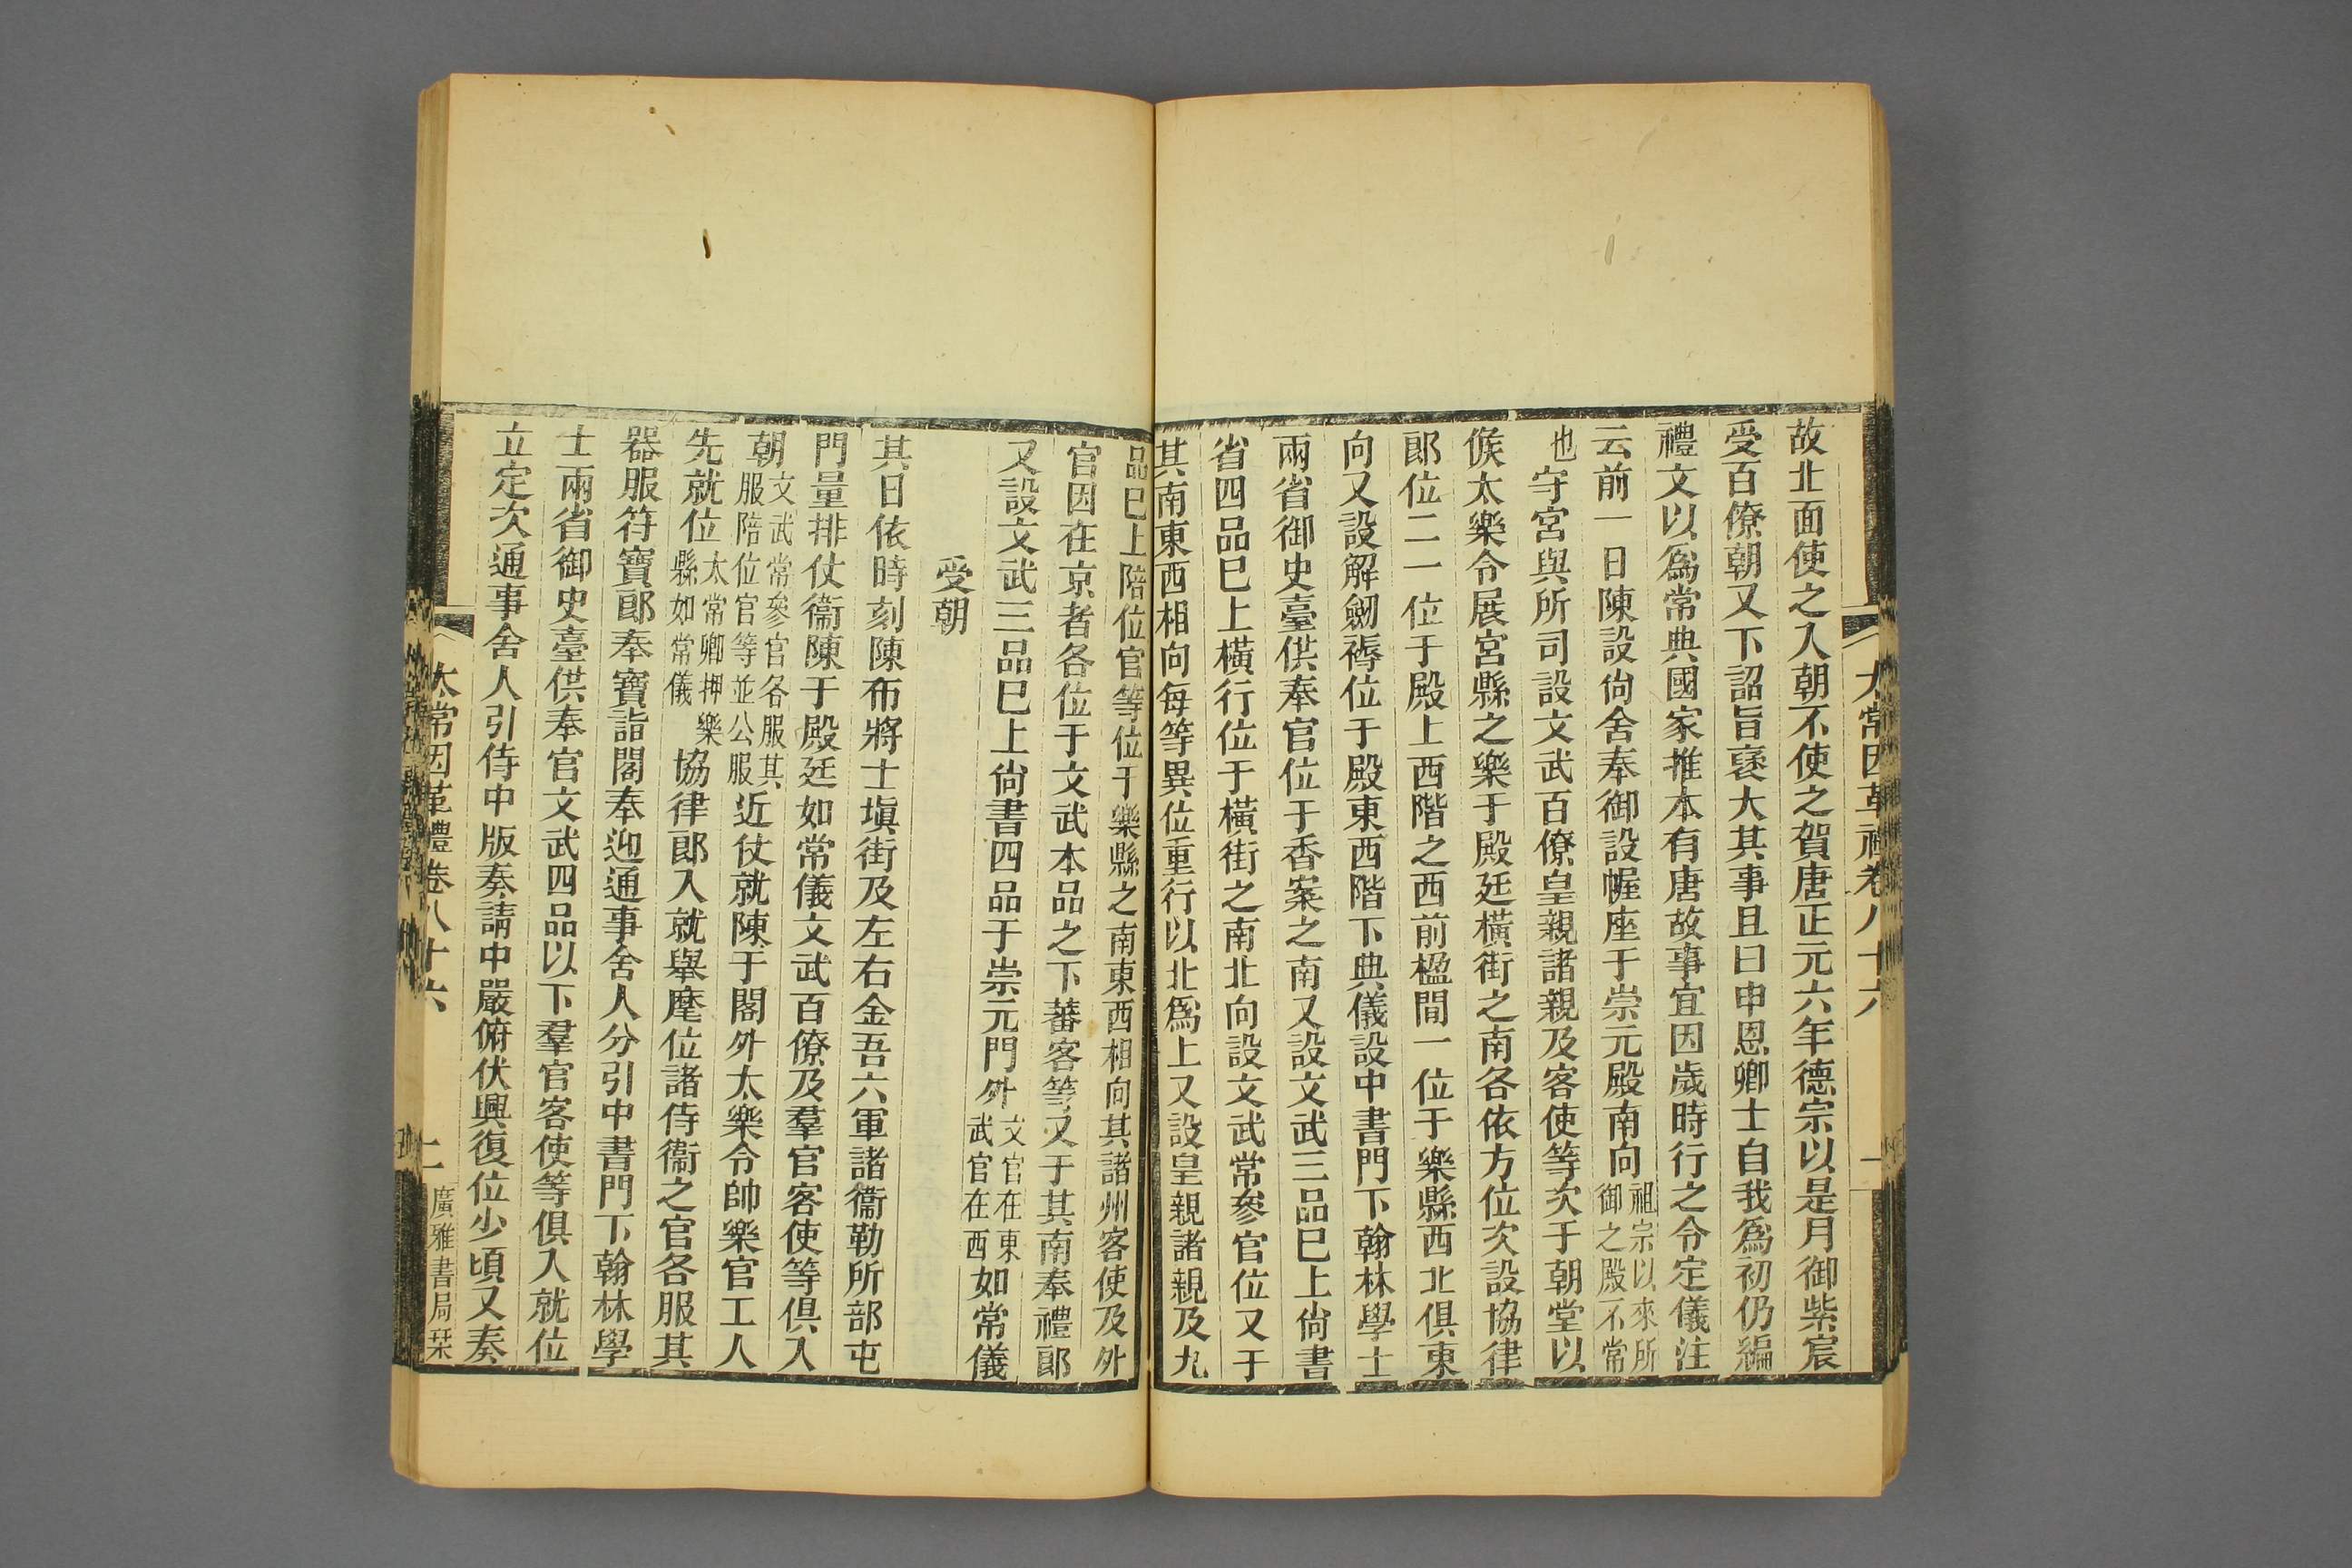 太常因革禮卷八十六
一
故北面使之入朝不使之賀唐正元六年德宗以是月御紫宸
受百僚朝又下詔旨襃大其事且曰申恩卿士自我爲初仍編
禮文以爲常典國家推本有唐故事宜因歲時行之令定儀注
云前一日陳設尙舍奉御設幄座于崇元殿南向祖宗以來所御之殿不常
也守宮與所司設文武百僚皇親諸親及客使等次于朝堂以
俟太樂令展宮縣之樂于殿廷橫街之南各依方位次設協律
郞位二一位于殿上西階之西前楹間一位于樂縣西北俱東
向又設解劒褥位于殿東西階下典儀設中書門下翰林學士
兩省御史臺供奉官位于香案之南又設文武三品巳上尙書
省四品巳上橫行位于橫街之南北向設文武常參官位又于
其南東西相向每等異位重行以北爲上又設皇親諸親及九
品巳上陪位官等位于樂縣之南東西相向其諸州客使及外
官因在京者各位于文武本品之下蕃客等又于其南奉禮郞
又設文武三品巳上尙書四品于崇元門外文官在東武官在西如常儀
受朝
其日依時刻陳布將士塡街及左右金吾六軍諸衞勒所部屯
門量排仗衞陳于殿廷如常儀文武百僚及羣官客使等俱入
朝文武常參官各服其服陪位官等並公服近仗就陳于閣外太樂令帥樂官工人
先就位太常卿押樂縣如常儀協律郞入就舉麾位諸侍衞之官各服其
器服符寶郞奉寶詣閣奉迎通事舍人分引中書門下翰林學
士兩省御史臺供奉官文武四品以下羣官客使等俱入就位
立定次通事舍人引侍中版奏請中嚴俯伏興復位少頃又奏
太常因革禮卷八十六
二
廣雅書局栞